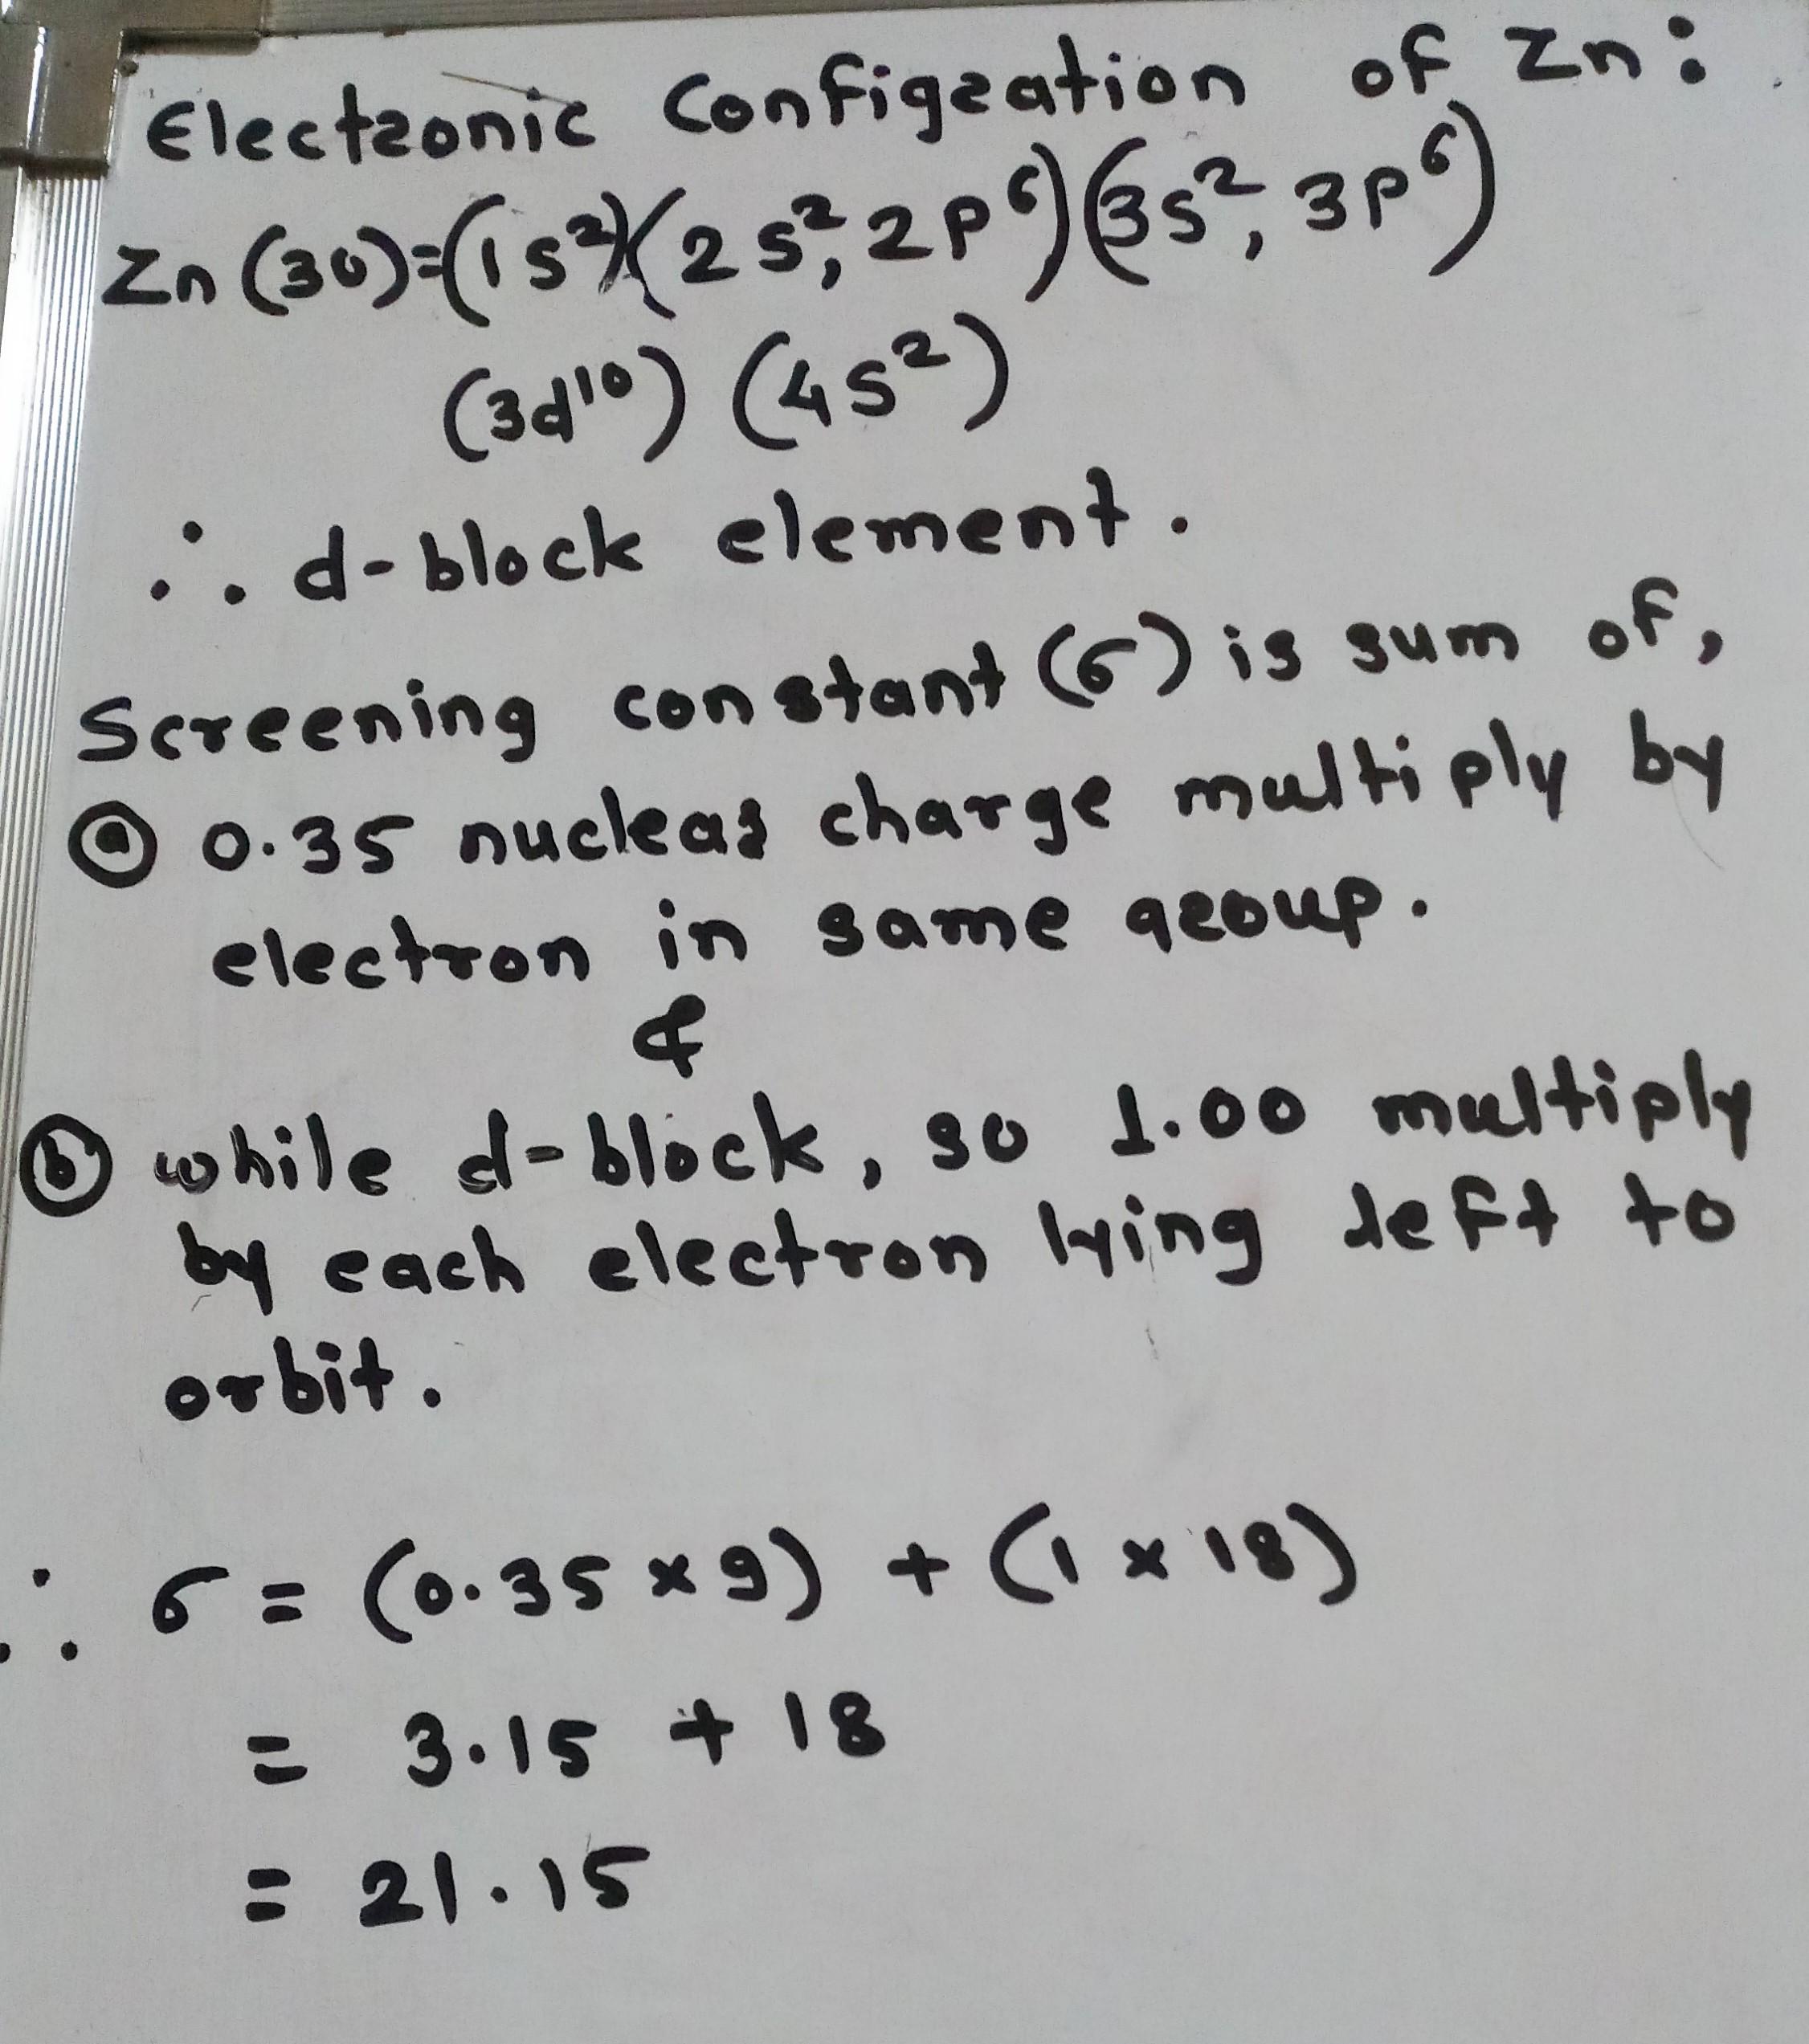 Electronic Configration of Zn:
Zn (30)=(1s²)(2s²,2p⁶)(3s²,3p⁶)
(3d¹⁰) (4s²)
∴ d-block element.
Screening constant (σ) is sum of,
ⓐ 0.35 nuclear charge multiply by
electron in same group.
&
ⓑ while d-block, so 1.00 multiply
by each electron lying left to
orbit.
∴ σ = (0.35 × 9) + (1 × 18)
= 3.15 + 18
= 21.15